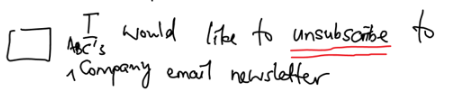 I would like to unsubscribe to
ABC's Company email newsletter